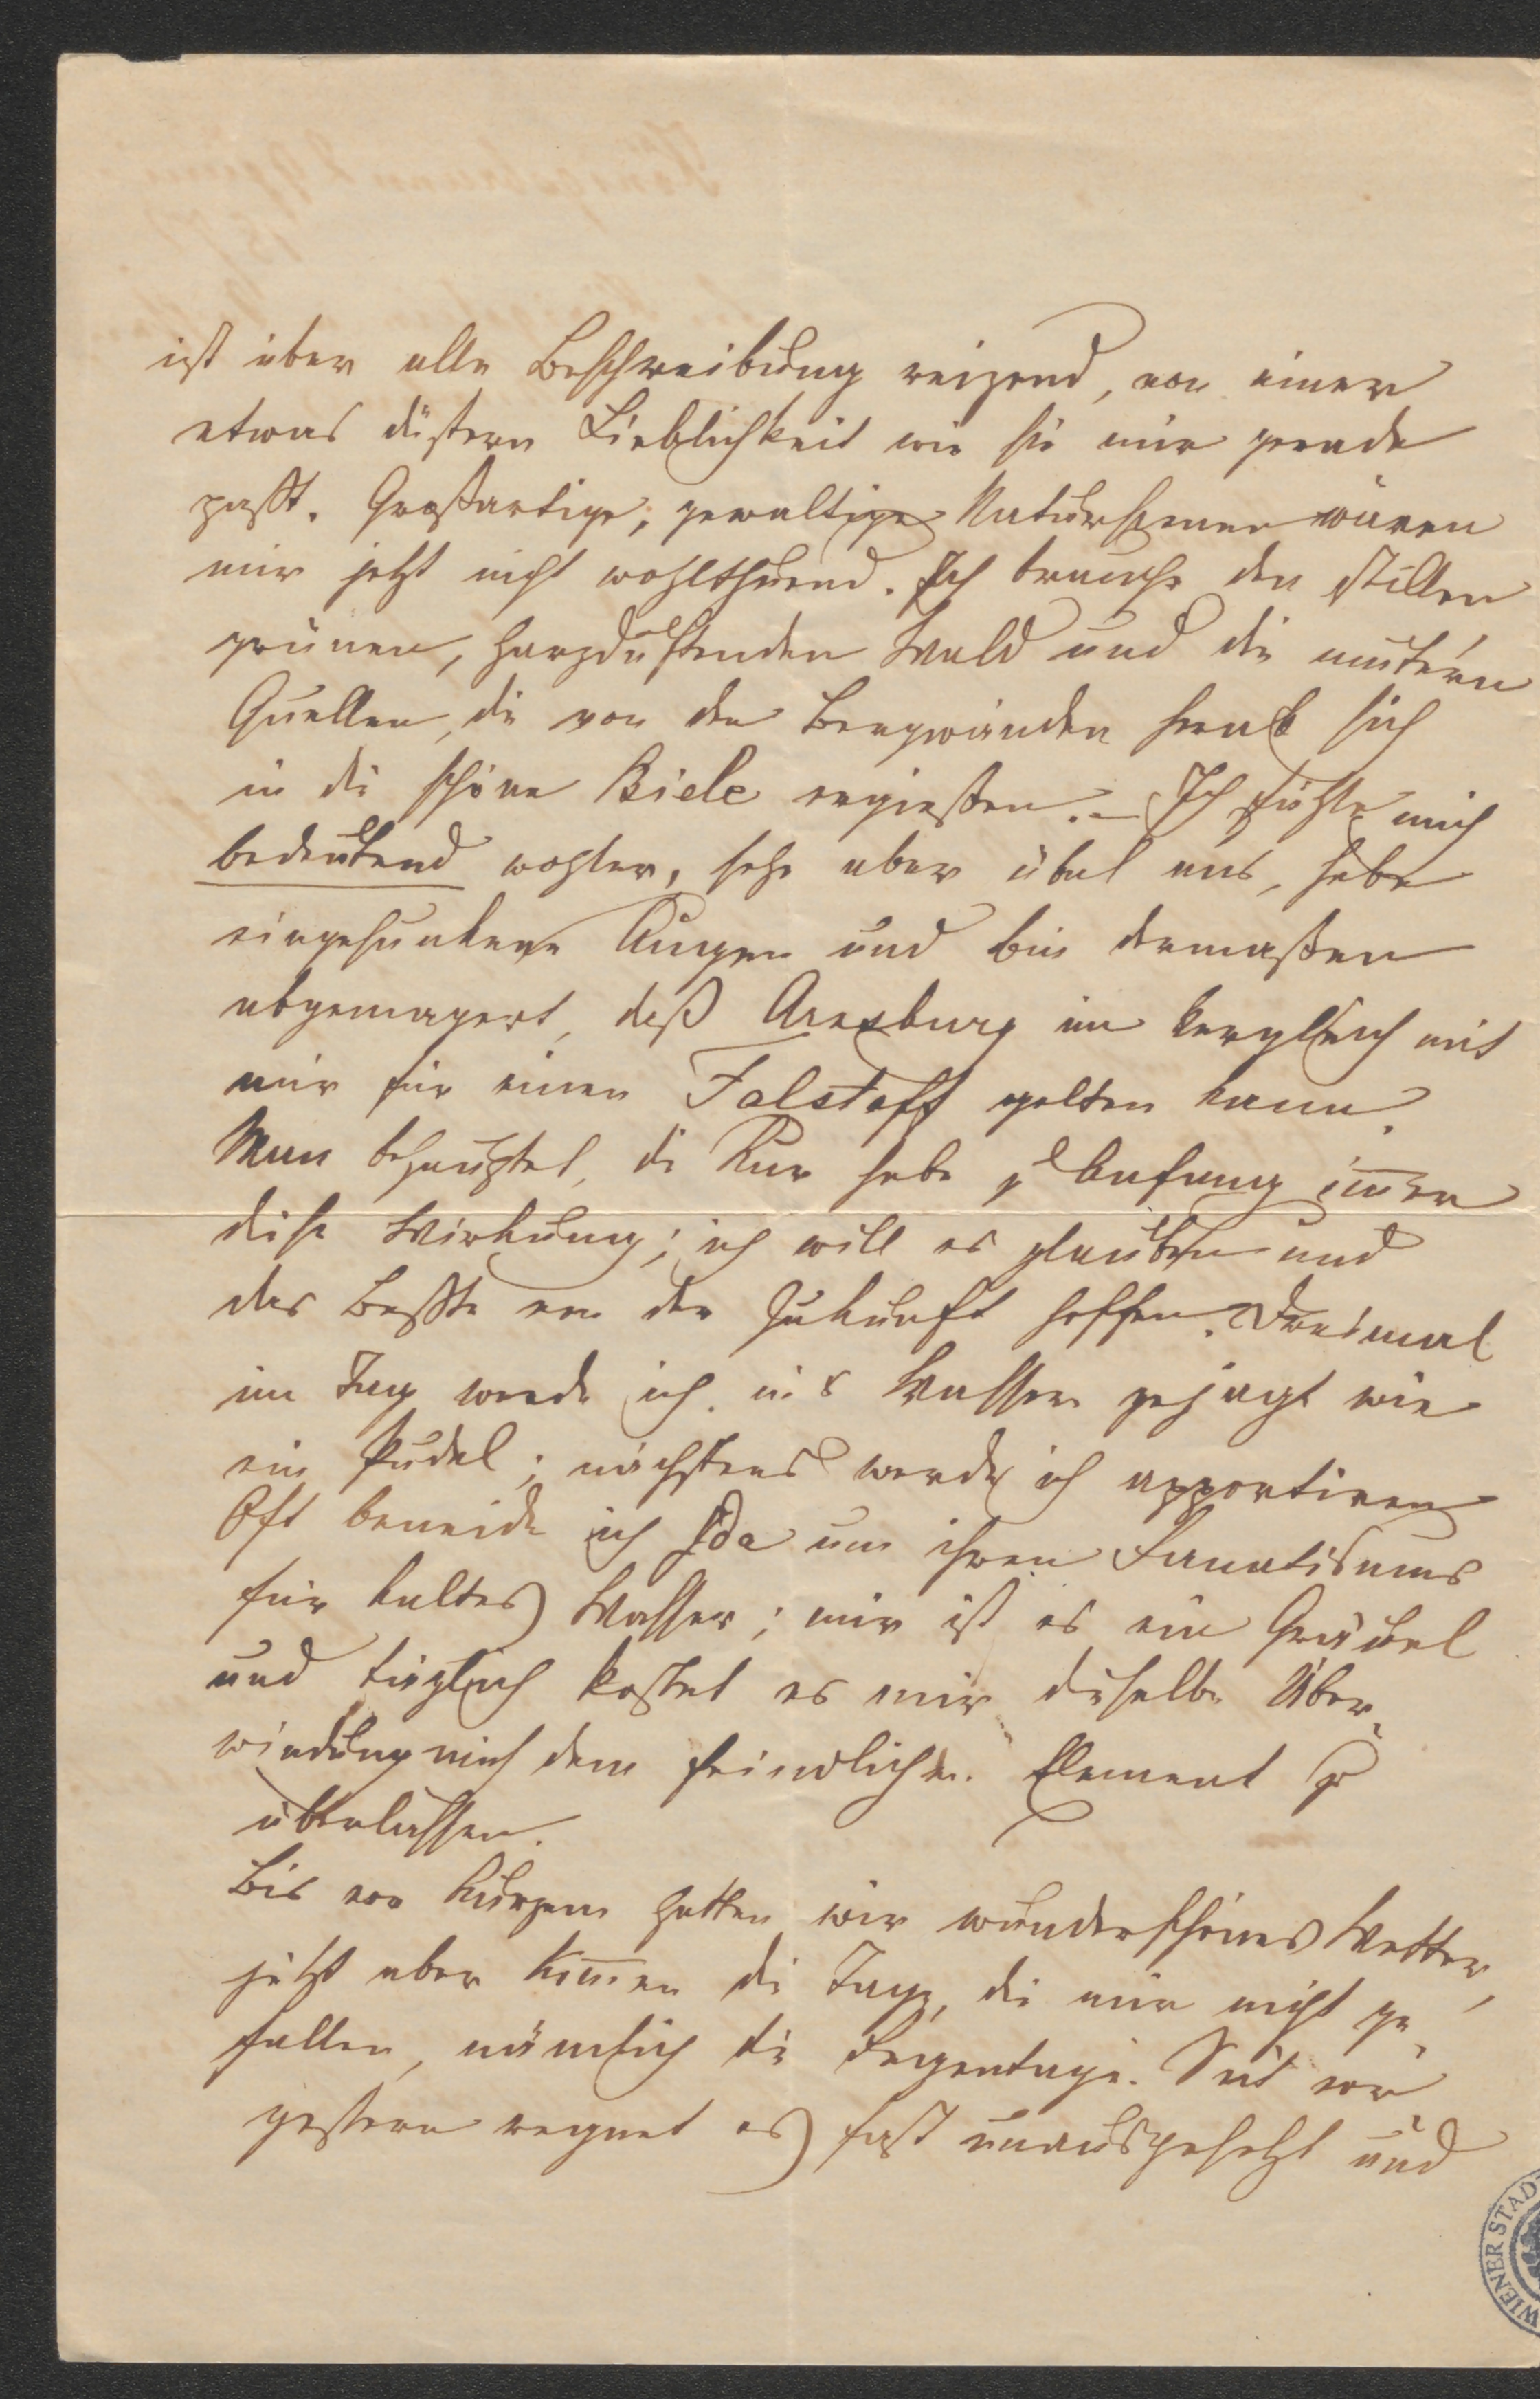 ist über alle Beschreibung reizend, von einer
etwas düstern Lieblichkeit wie sie mir gerade
paßt. Großartige, gewaltige Naturscenen wären
mir jetzt nicht wohlthuend. Ich brauche den stillen
grünen, harzduftenden Wald und die muntern
Quellen, die von den Bergwänden herab sich
in die schöne Biele ergießen. – Ich fühle mich
bedeutend wohler, sehe aber übel aus, habe
eingesunkene Augen und bin dermaßen
abgemagert, daß im Vergleich mit
mir für einen Falstaff gelten kann.
Man behauptet, die Kur habe zu Anfang im̅er
diese Wirkung; ich will es glauben und
das Beßte von der Zukunft hoffen. Dreimal
im Tag werde ich ins Wasser gejagt wie
ein Pudel; nächstens werde ich apportiren
Oft beneide ich Ida um ihren Fanatismus
für kaltes Wasser; mir ist es ein Gräuel
und täglich kostet es mir dieselbe Über-
windung mich dem feindlichen Element zu
überlassen.
Bis vor Kurzem hatten wir wunderschönes Wetter,
jetzt aber kom̅en die Tage, die mir nicht ge-
fallen, nämlich die Regentage. Seit vor-
gestern regnet es fast unausgesetzt und
WIENER STAD